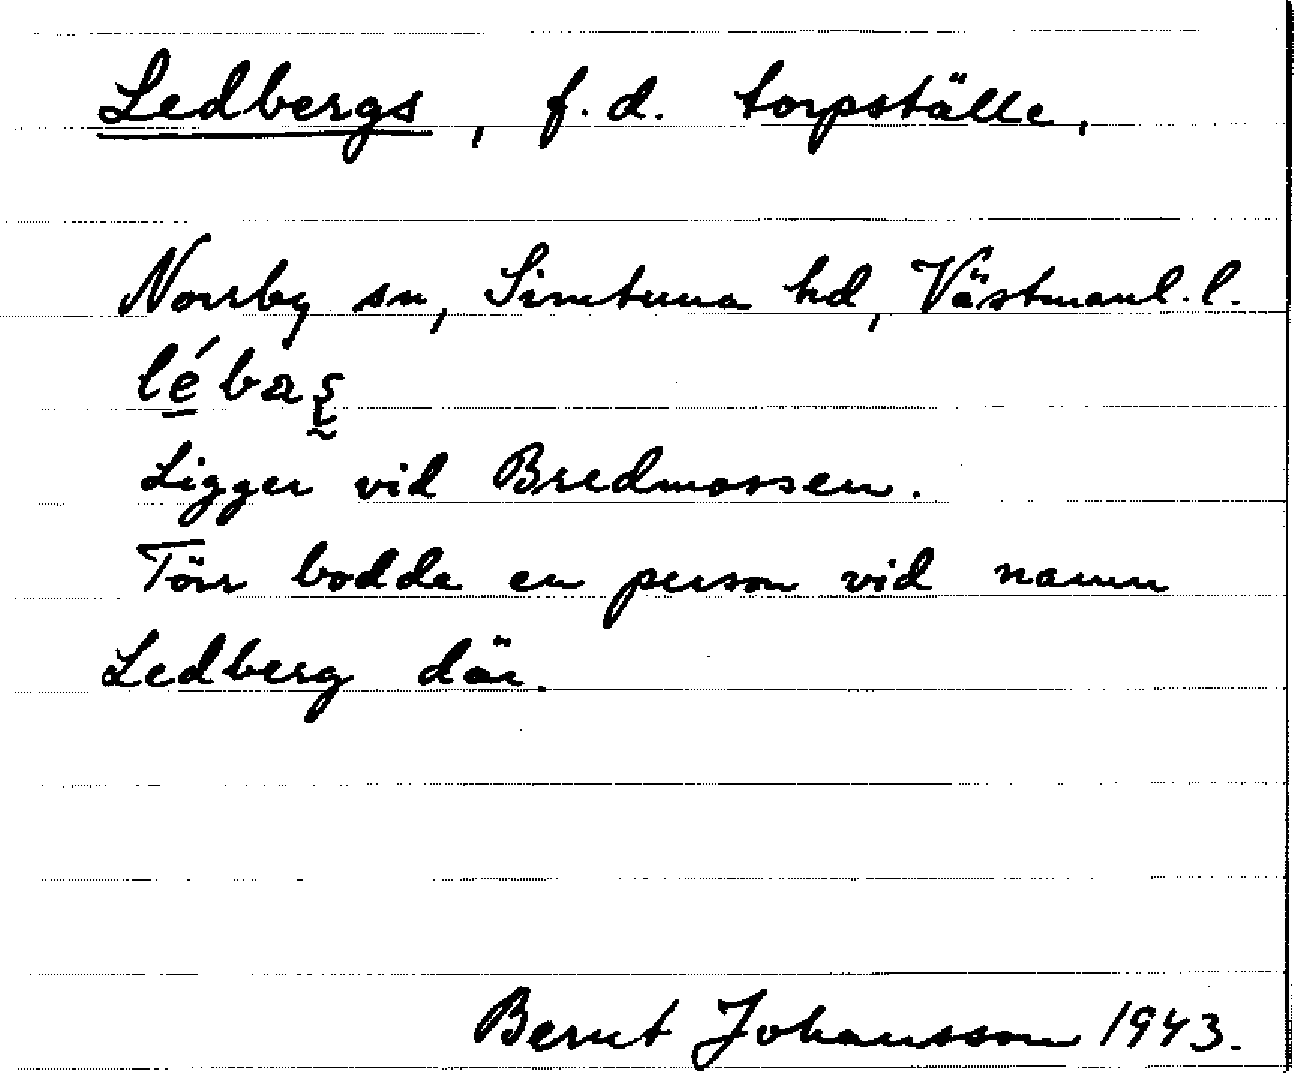 Ledbergs, f.d. torpställe.
Norrby sn, Simtuna hd, Västmanl. l.
Ligger vid Bredmossen.
Förr bodde en person vid namn
Ledberg där.
Bernt Johansson 1943.